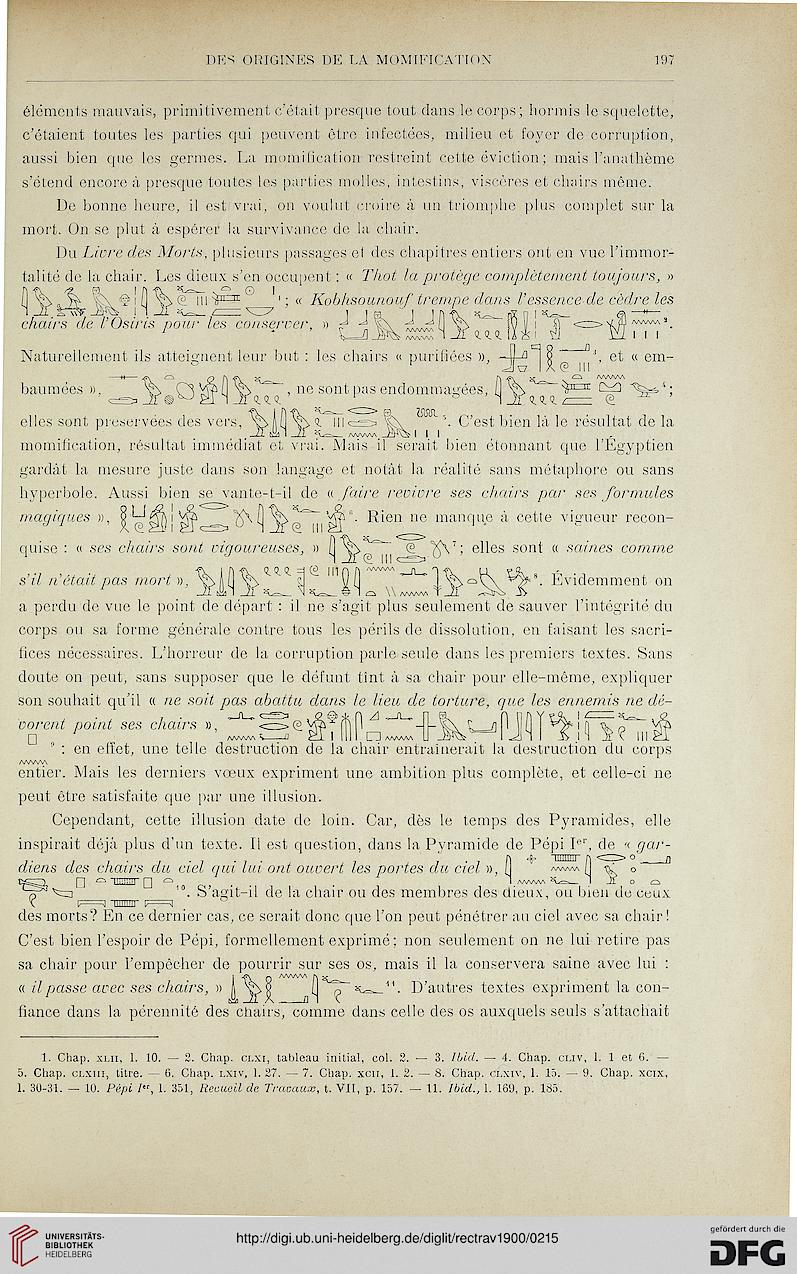 DES ORIGINES DE LA MOMIFICATION 197
éléments mauvais, primitivement c'était presque tout dans le corps; hormis le squelette,
c'étaient toutes les parties qui peuvent être infectées, milieu et foyer de corruption,
aussi bien que les germes. La momification restreint cette éviction; mais l'anathème
s'étend encore à presque toutes les parties molles, intestins, viscères et chairs même.
De bonne heure, il est vrai, on voulut croire à un triomphe plus complet sur la
mort. On se plut à espérer la survivance de la chair.
Du Livre des Morts, plusieurs passages et des chapitres entiers ont en vue l'immor-
talité de la chair. Les dieux s'en occupent : « Thot la protège complètement toujours, »
1; « Kobhsounouf trempe dans l'essence de cèdre les
chairs de l'Osiris pour les conserver, » 2.
Naturellement ils atteignent leur but : les chairs « purifiées », 3, et « em-
baumées », , ne sont pas endommagées, 4;
elles sont préservées des vers, 5. C'est bien là le résultat de la
momification, résultat immédiat et vrai. Mais il serait bien étonnant que l'Égyptien
gardât la mesure juste dans son langage et notât la réalité sans métaphore ou sans
hyperbole. Aussi bien se vante-t-il de « faire revivre ses chairs par ses formules
magiques », 6. Rien ne manque à cette vigueur recon-
quise : « ses chairs sont vigoureuses, » 7; elles sont « saines comme
s'il n'était pas mort », 8. Évidemment on
a perdu de vue le point de départ : il ne s'agit plus seulement de sauver l'intégrité du
corps ou sa forme générale contre tous les périls de dissolution, en faisant les sacri-
fices nécessaires. L'horreur de la corruption parle seule dans les premiers textes. Sans
doute on peut, sans supposer que le défunt tînt à sa chair pour elle-même, expliquer
son souhait qu'il « ne soit pas abattu dans le lieu de torture, que les ennemis ne dé-
vorent point ses chairs »,
9 : en effet, une telle destruction de la chair entraînerait la destruction du corps
entier. Mais les derniers vœux expriment une ambition plus complète, et celle-ci ne
peut être satisfaite que par une illusion.
Cependant, cette illusion date de loin. Car, dès le temps des Pyramides, elle
inspirait déjà plus d'un texte. Il est question, dans la Pyramide de Pépi Ier, de « gar-
diens des chairs du ciel qui lui ont ouvert les portes du ciel »,
10. S'agit-il de la chair ou des membres des dieux, ou bien de ceux
des morts? En ce dernier cas, ce serait donc que l'on peut pénétrer au ciel avec sa chair!
C'est bien l'espoir de Pépi, formellement exprimé; non seulement on ne lui retire pas
sa chair pour l'empêcher de pourrir sur ses os, mais il la conservera saine avec lui :
« il passe avec ses chairs, » 11. D'autres textes expriment la con-
fiance dans la pérennité des chairs, comme dans celle des os auxquels seuls s'attachait
1. Chap. XLII, l. 10. — 2. Chap. CLXI, tableau initial, col. 2. — 3. Ibid. — 4. Chap. CLIV, l. 1 et 6. —
5. Chap. CLXIII, titre. — 6. Chap. LXIV, l. 27. — 7. Chap. XCII, l. 2. — 8. Chap. CLXIV, l. 15. — 9. Chap. XCIX,
l. 30-31. — 10. Pépi Ier, l. 351, Recueil de Travaux, t. VII, p. 157. — 11. Ibid., l. 169, p. 185.
UNIVERSITÄTS-
BIBLIOTHEK
HEIDELBERG
http://digi.ub.uni-heidelberg.de/diglit/rectrav1900/0215
gefördert durch die
DFG